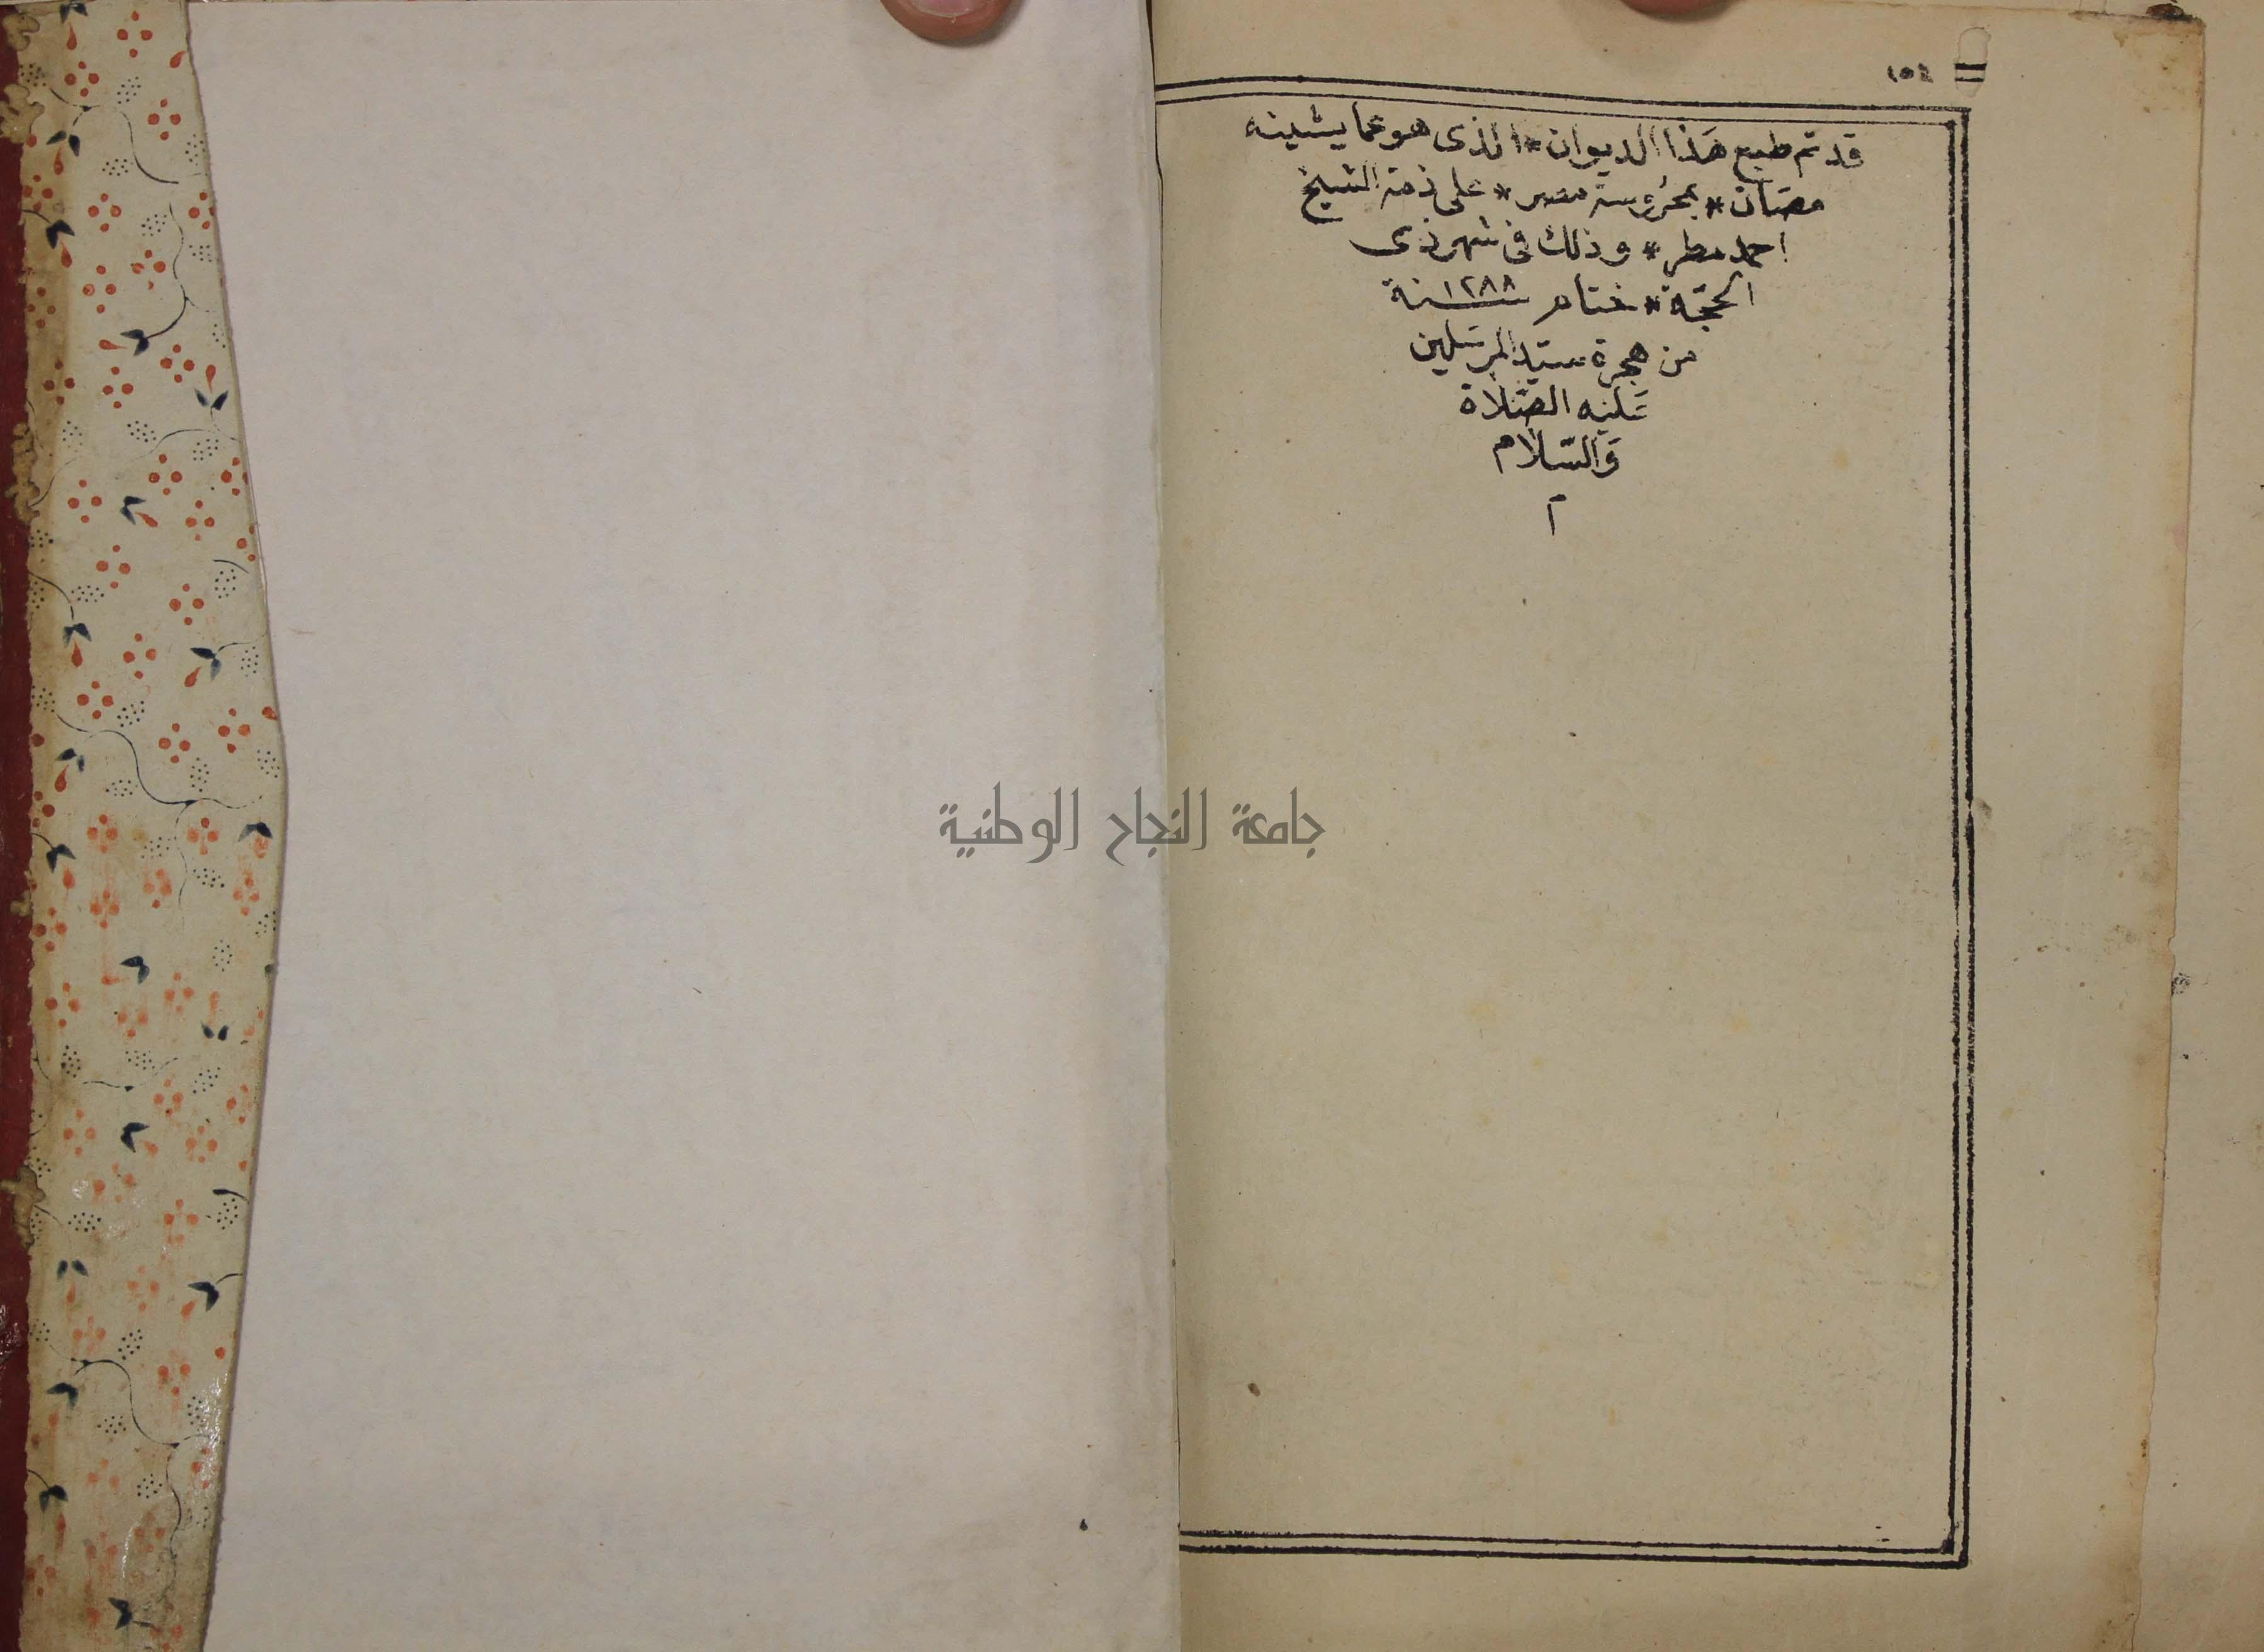 ١٥٤
قد تم طبع هَذا الديوان * الذى هو عما يشينه
مصَان * بمحرُوسة مصر * على ذمة الشيخ
احمد مطر * وذلك فى شهر ذى
الحجّة * ختام سنة ١٢٨٨
من هجرة سيّد المرسَلين
عَليْه الصَّلاة
وَالسّلام
م
جامعة النجاح الوطنية